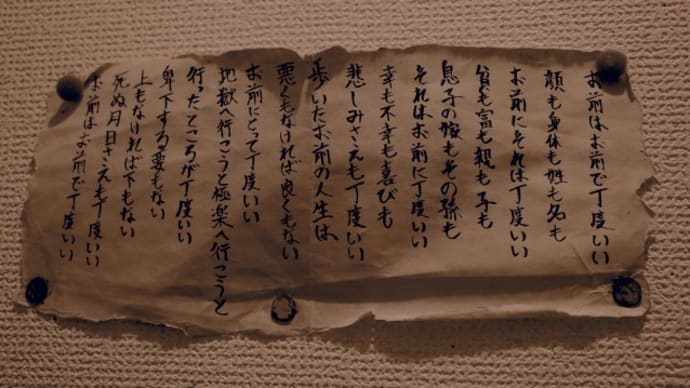 お前はお前で丁度いい
顔も身体も姓も名も
お前にそれは丁度いい
貧も富も親も子も
息子の嫁もその孫も
それはお前に丁度いい
幸も不幸も喜びも
悲しみさえも丁度いい
歩いたお前の人生は
悪くもなければ良くもない
お前にとって丁度いい
地獄へ行こうと極楽へ行こうと
行ったところが丁度いい
卑下する要もない
上もなければ下もない
死ぬ月日さえも丁度いい
お前はお前で丁度いい